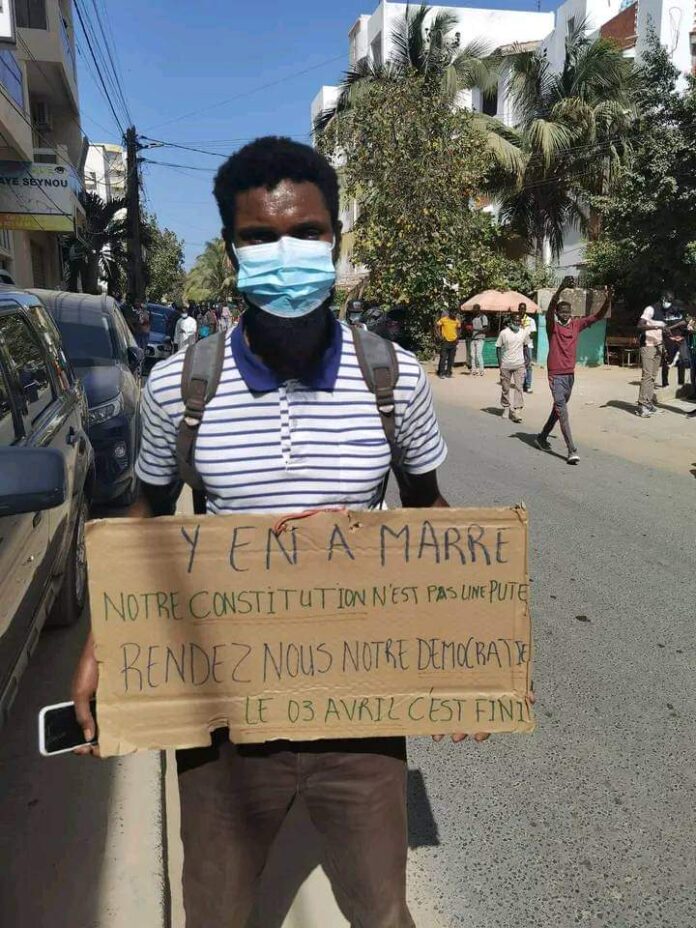 AYE SEYNOU
Y EN A MARRE
NOTRE CONSTITUTION N'EST PAS UNE PUTE
RENDEZ NOUS NOTRE DEMOCRATIE
LE 03 AVRIL C'EST FINI